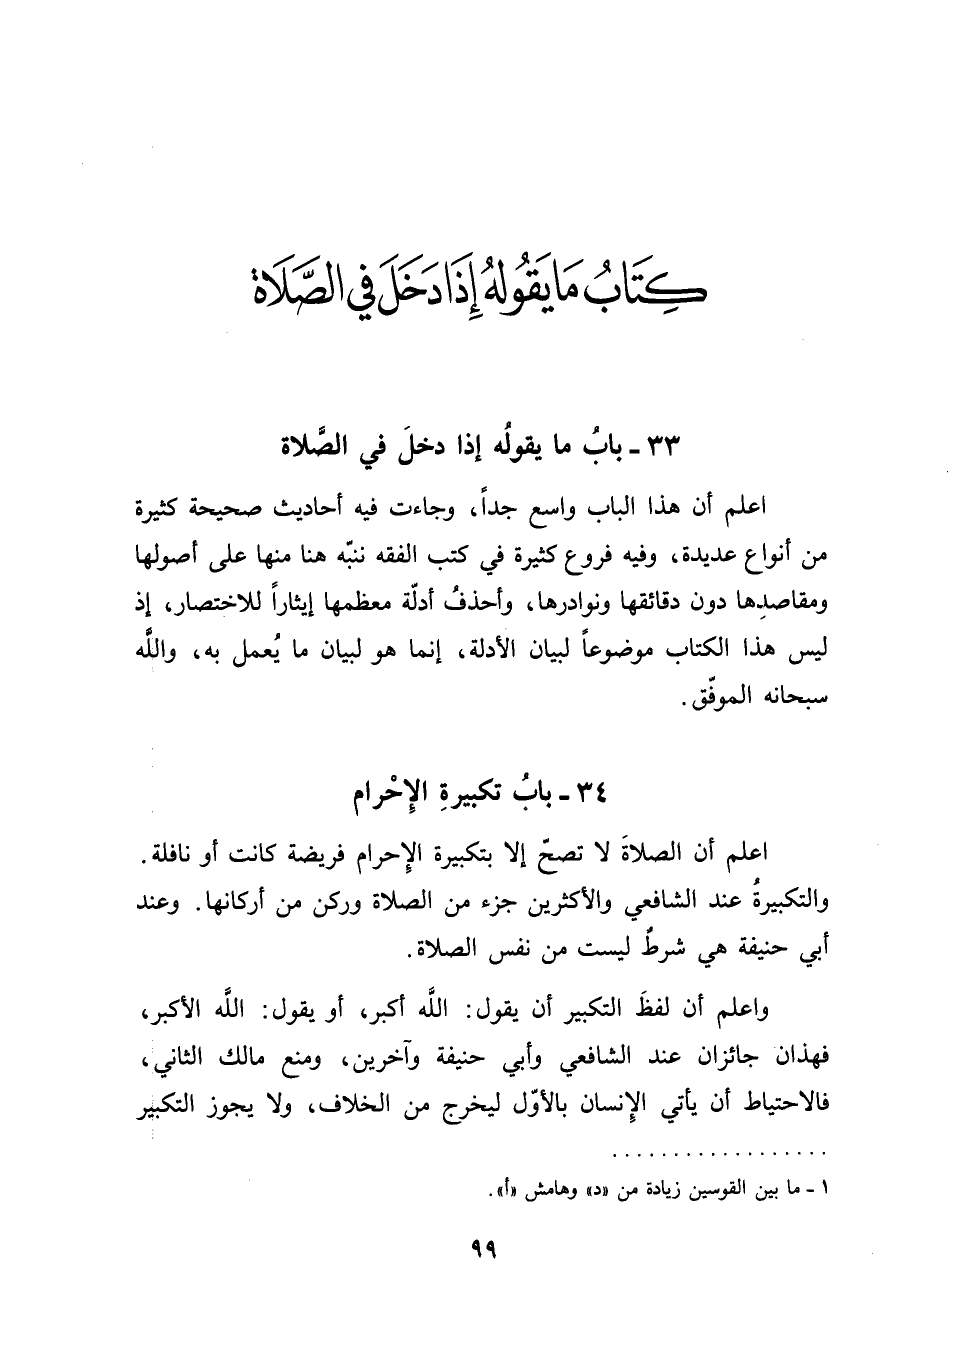 كِتَابُ مَا يَقُولُهُ إِذَا دَخَلَ فِي الصَّلَاة
٣٣ ـ بابُ ما يقولُه إذا دخلَ في الصَّلاة
اعلم أن هذا الباب واسع جداً، وجاءت فيه أحاديث صحيحة كثيرة
من أنواع عديدة، وفيه فروع كثيرة في كتب الفقه ننبّه هنا منها على أصولها
ومقاصدِها دون دقائقها ونوادرها، وأحذفُ أدلّة معظمها إيثاراً للاختصار، إذ
ليس هذا الكتاب موضوعاً لبيان الأدلة، إنما هو لبيان ما يُعمل به، واللَّه
سبحانه الموفّق.
٣٤ ـ بابُ تكبيرةِ الإِحْرام
اعلم أن الصلاةَ لا تصحّ إلا بتكبيرة الإِحرام فريضة كانت أو نافلة.
والتكبيرةُ عند الشافعي والأكثرين جزء من الصلاة وركن من أركانها. وعند
أبي حنيفة هي شرطٌ ليست من نفس الصلاة.
واعلم أن لفظَ التكبير أن يقول: اللَّه أكبر، أو يقول: اللَّه الأكبر،
فهذان جائزان عند الشافعي وأبي حنيفة وآخرين، ومنع مالك الثاني،
فالاحتياط أن يأتي الإِنسان بالأوّل ليخرج من الخلاف، ولا يجوز التكبير
١ ـ ما بين القوسين زيادة من «د» وهامش «أ».
٩٩